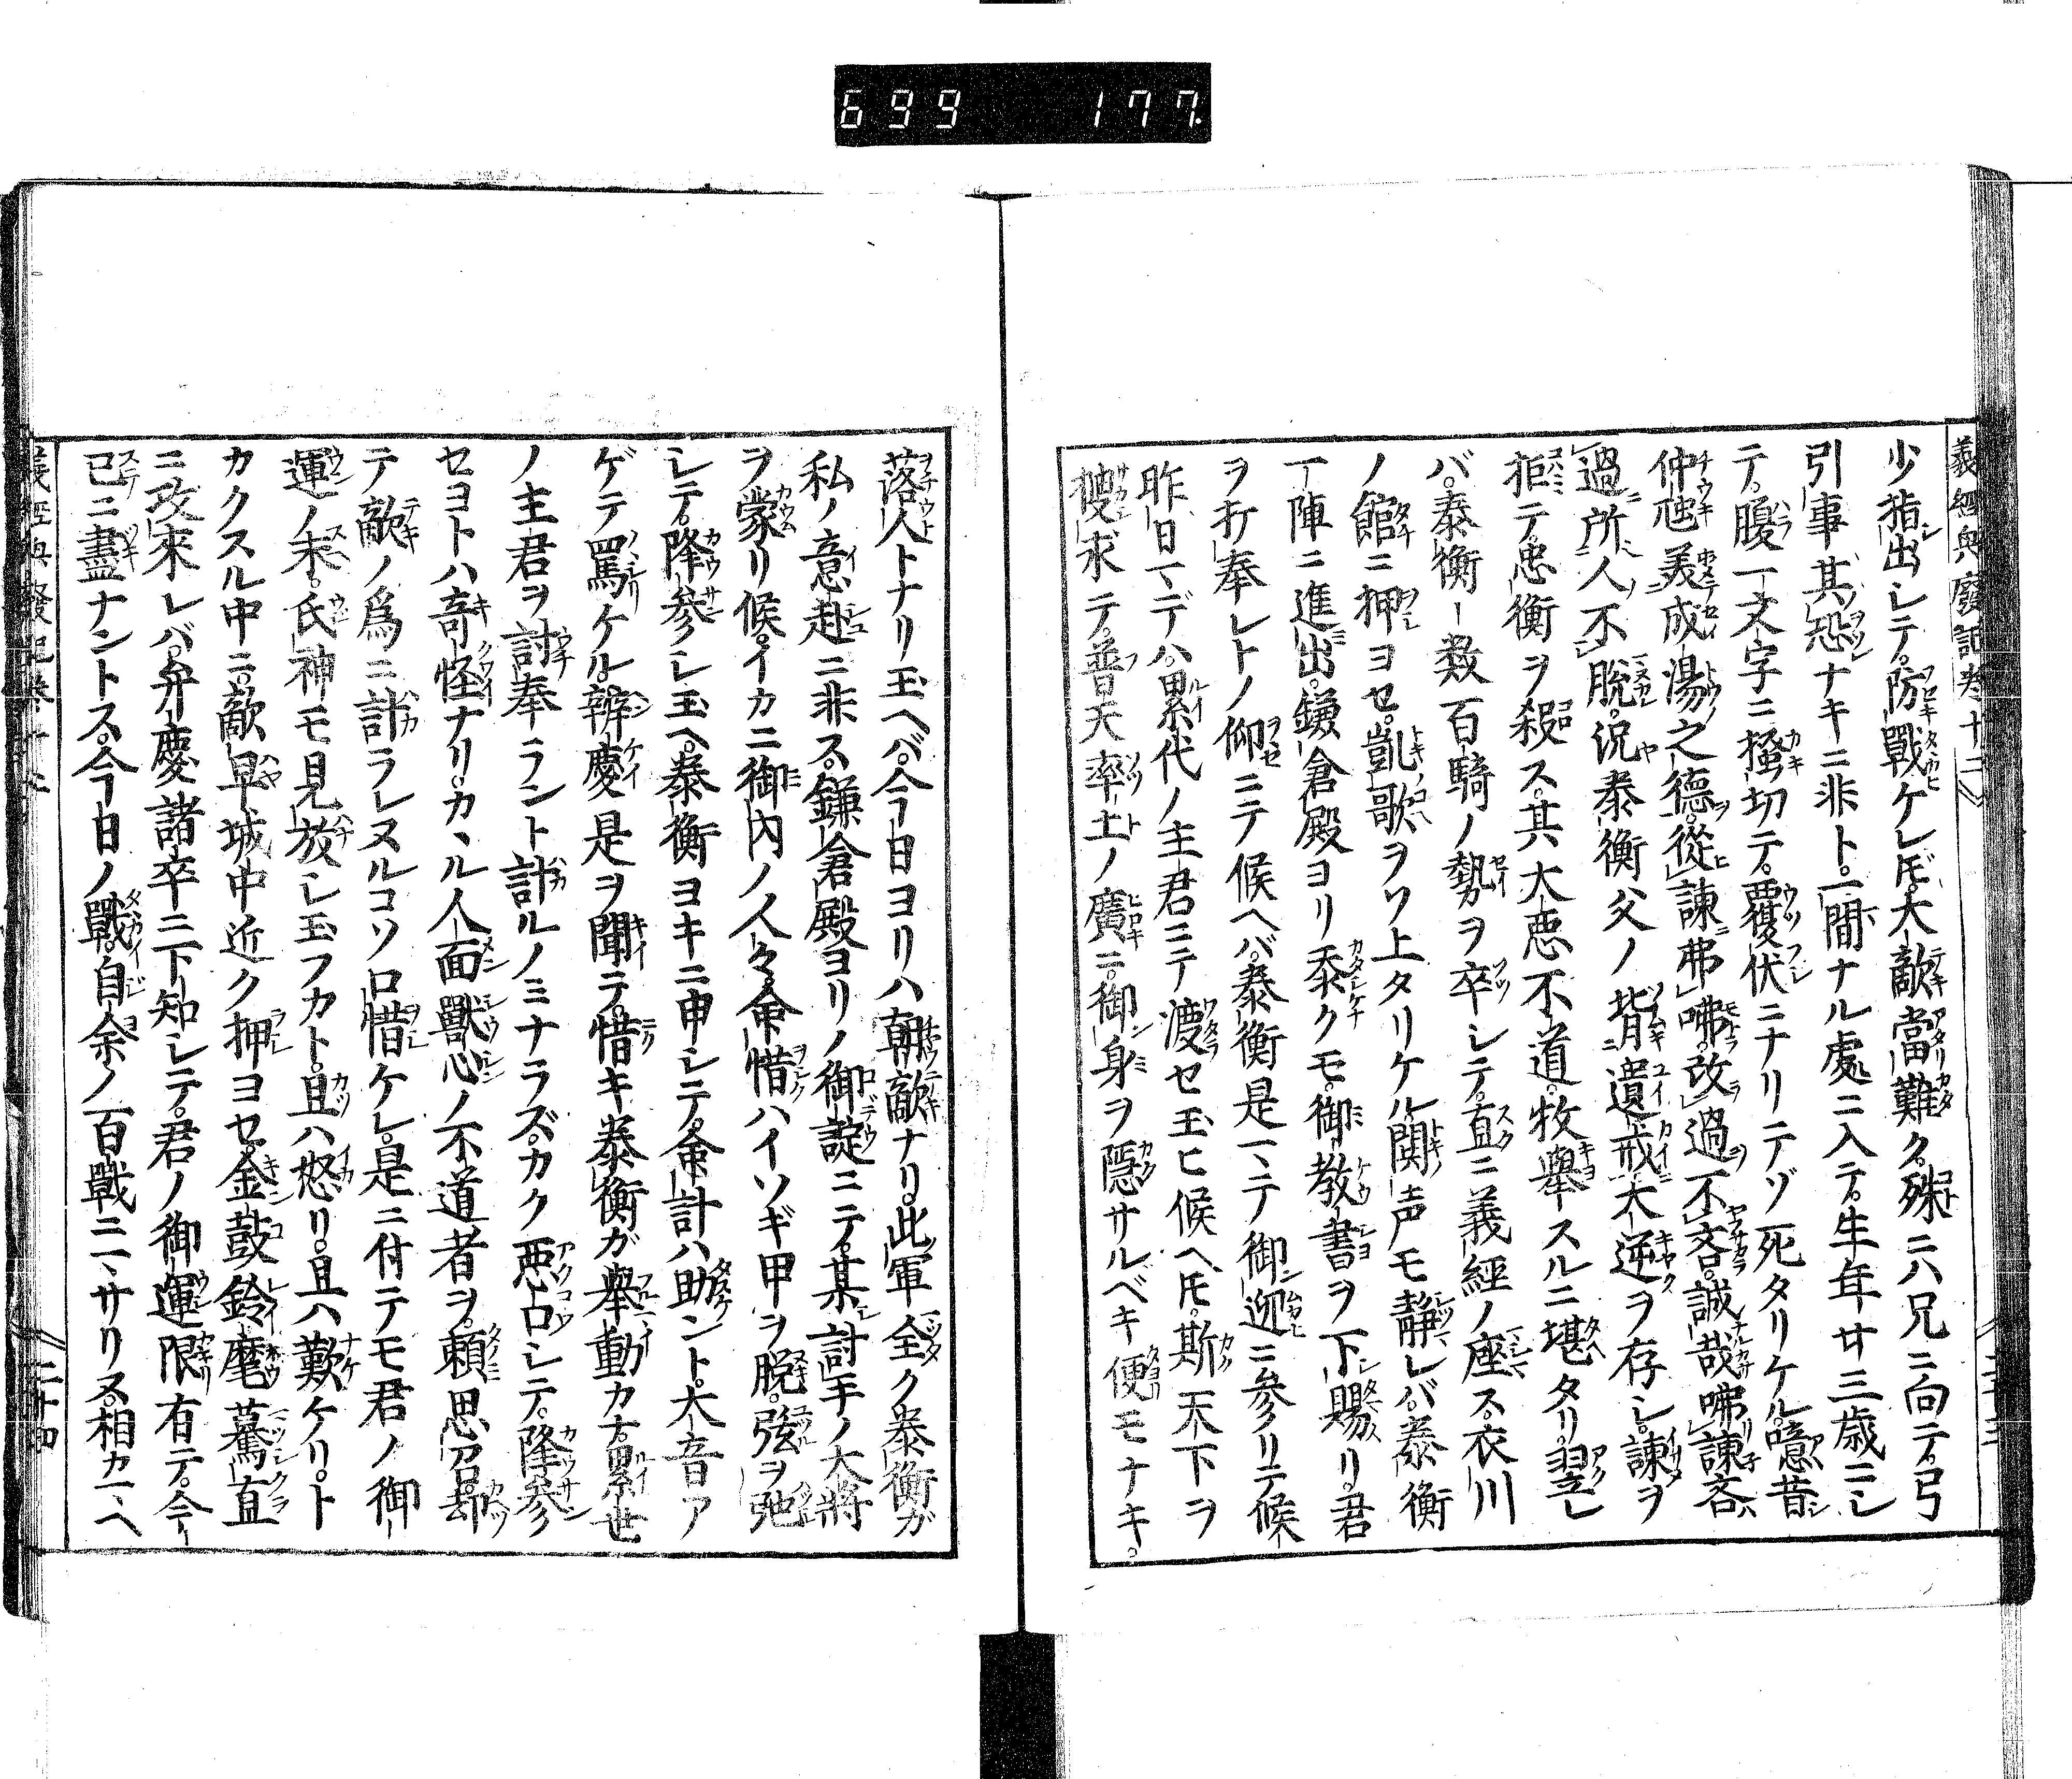 699 177.
義經興廢記巻十二
少指出シテ。防戰ケレ𪜈。大敵當難ク。殊ニハ兄ニ向テ。弓
引事其恐ナキニ非ト。一間ナル處ニ入テ。生年廿三歳ニシ
テ。腹一文字ニ掻切テ。覆伏ニナリテゾ死タリケル。噫昔
仲虺美成湯之德。從諫弗咈。改過不吝。誠哉咈諫吝
過所人不脱。況泰衡父ノ背遺戒大逆ヲ存シ。諫ヲ
拒テ。忠衡ヲ殺ス。其大悪不道。枚舉スルニ堪タリ。翌レ
バ。泰衡數百騎ノ勢ヲ卒シテ。直ニ義經ノ座ス。衣川
ノ館ニ押ヨセ。凱歌ヲソ上タリケル。鬨声モ静レバ。泰衡
一陣ニ進出。鎌倉殿ヨリ忝クモ。御教書ヲ下賜リ。君
ヲ打奉レトノ仰ニテ候ヘバ。泰衡是マテ御迎ニ参リテ候
昨日マデハ。累代ノ主君ニテ渡セ玉ヒ候ヘ𪜈。斯天下ヲ
求テ。普天率土ノ廣ニ。御身ヲ隱サルベキ便モナキ。
二十三
落人トナリ玉ヘバ。今日ヨリハ朝敵ナリ。此軍全ク泰衡ガ
私ノ意趣ニ非ス。鎌倉殿ヨリノ御諚ニテ。某討手ノ大將
ヲ蒙リ候。イカニ御内ノ人々。命惜ハイソギ甲ヲ脱。弦ヲ弛
シテ。降参シ玉ヘ。泰衡ヨキニ申シテ。命計ハ助ント。大音ア
ゲテ罵ケル。辨慶是ヲ聞テ。惜キ泰衡ガ擧動カナ。累世
ノ主君ヲ討奉ラント計ルノミナラズ。カク悪口シテ。降参
セヨトハ奇怪ナリ。カヽル人面獸心ノ不道者ヲ。頼思召却
テ敵ノ爲ニ計ラレヌルコソ口惜ケレ。是ニ付テモ君ノ御
運ノ末。氏神モ見放シ玉フカト。且ハ怒リ。且ハ歎ケリ。ト
カクスル中ニ。敵早城中近ク押ヨセ。金鼓鈴麾驀直
ニ攻來レバ。弁慶諸卒ニ下知シテ。君ノ御運限有テ。今
已ニ盡ナントス。今日ノ戰。自余ノ百戰ニマサリス。相カマヘ
義經興廢記巻十二
二十四